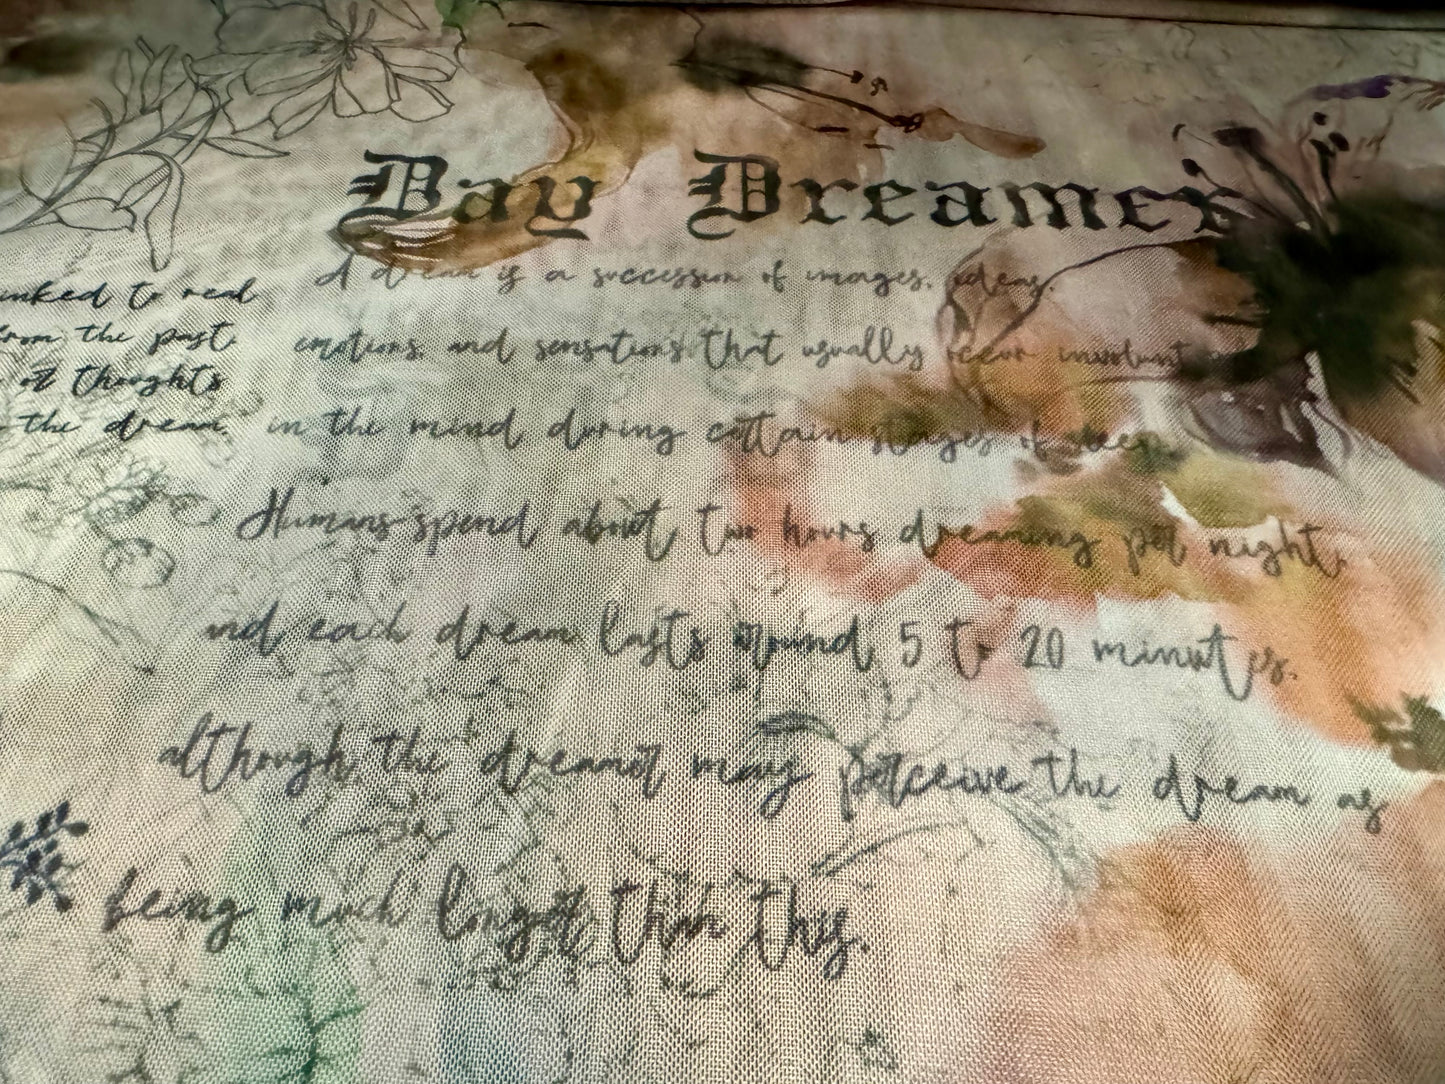 Day Dreamer
A dream is a succession of images, ideas,
emotions, and sensations that usually occur involuntarily
in the mind during certain stages of sleep.
Humans spend about two hours dreaming per night,
and each dream lasts around 5 to 20 minutes,
although the dreamer may perceive the dream as
being much longer than this.
linked to real
from the past,
or thoughts
the dream,